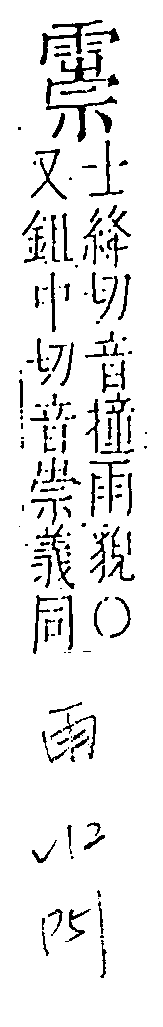 士絳切音撞雨貌〇
又鉏中切音崇義同
雨